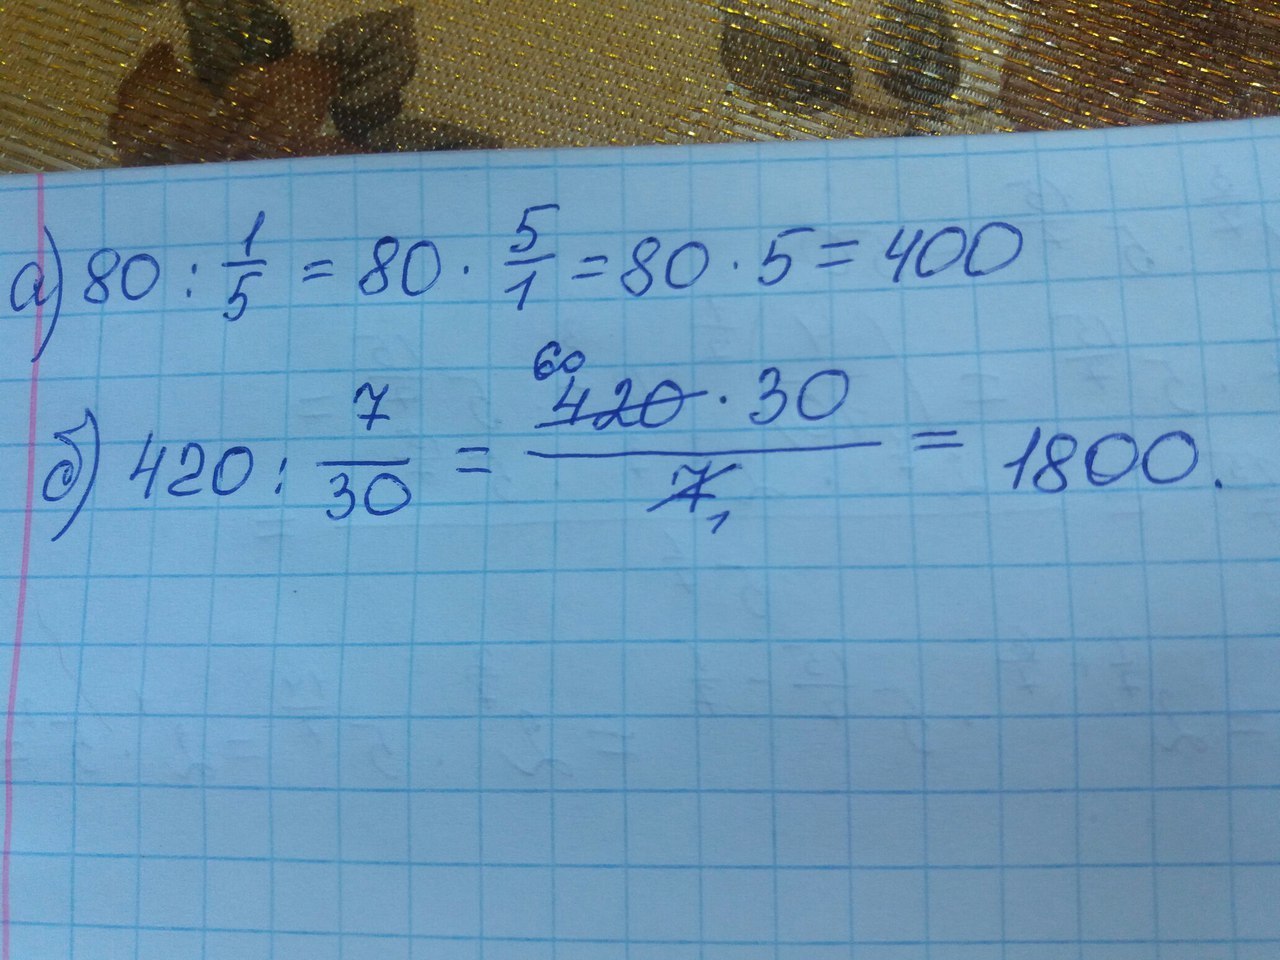 а) 80 : 1/5 = 80 · 5/1 = 80 · 5 = 400
б) 420 : 7/30 = 420 60 · 30 / 7 1 = 1800.